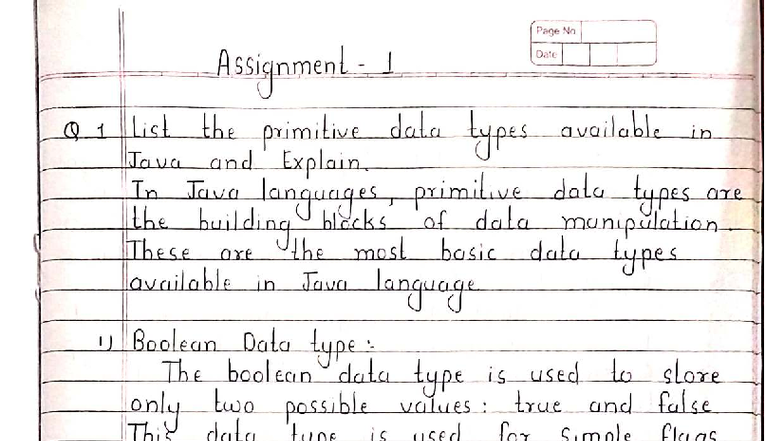 Page No
Date
Assignment - 1
Q 1 List the primitive data types available in
Java and Explain.
In Java languages, primitive data types are
the building blocks of data manipulation.
These are the most basic data types
available in Java language
1) Boolean Data type :-
The boolean data type is used to store
only two possible values : true and false
This data type is used for simple flags